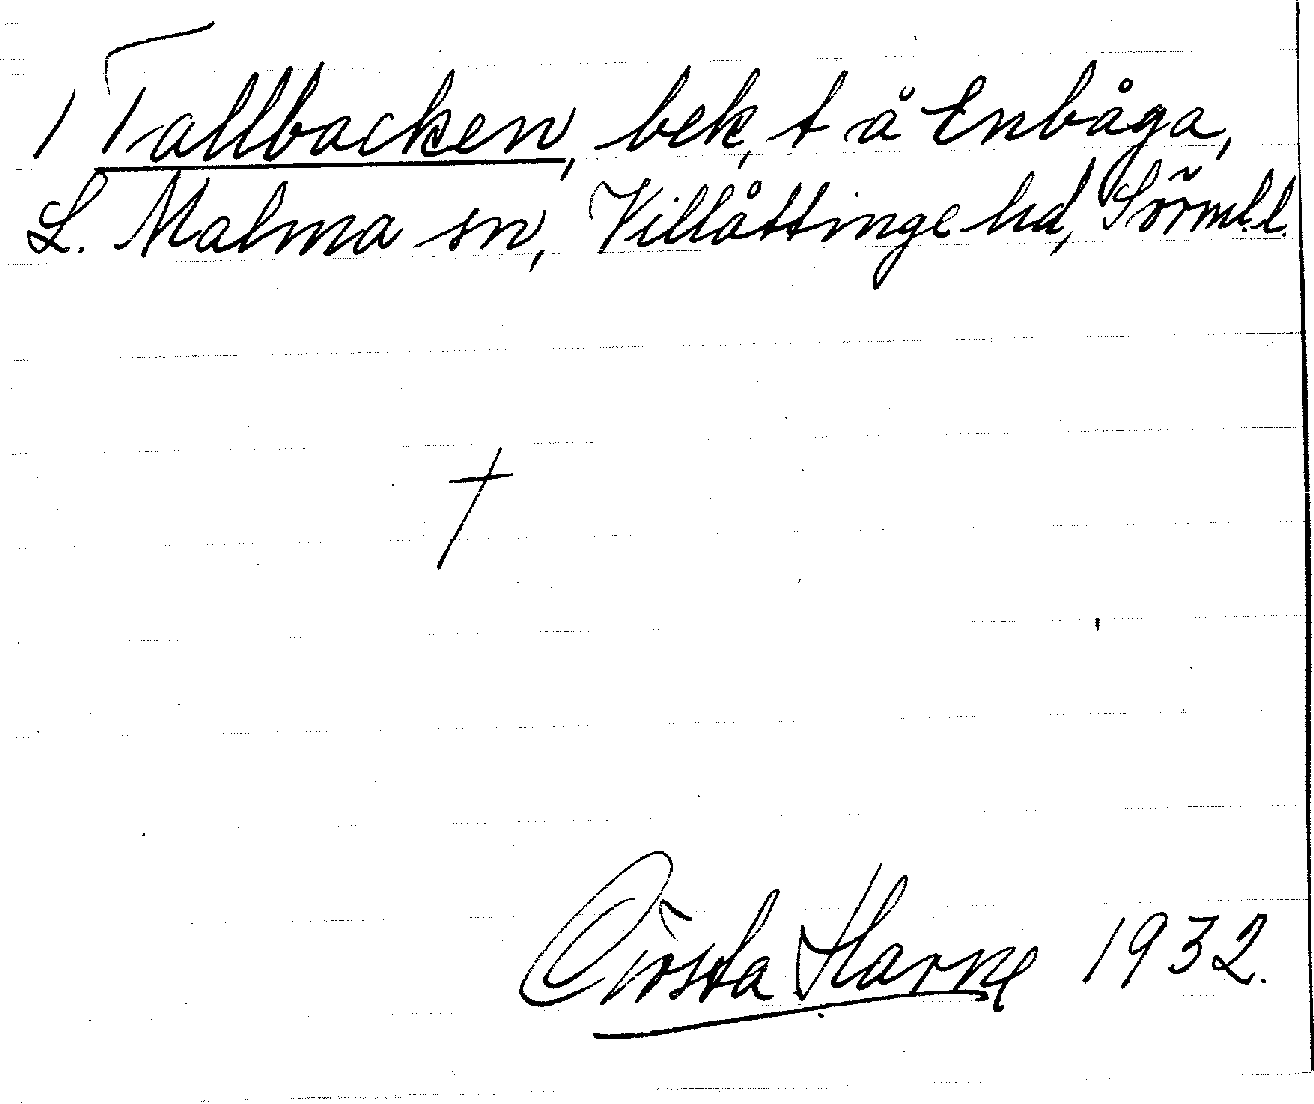 1 Tallbacken, bek, t å Enbåga,
L. Malma sn, Villåttinge hd, Sörml.l.
†
Gösta Harne 1932.